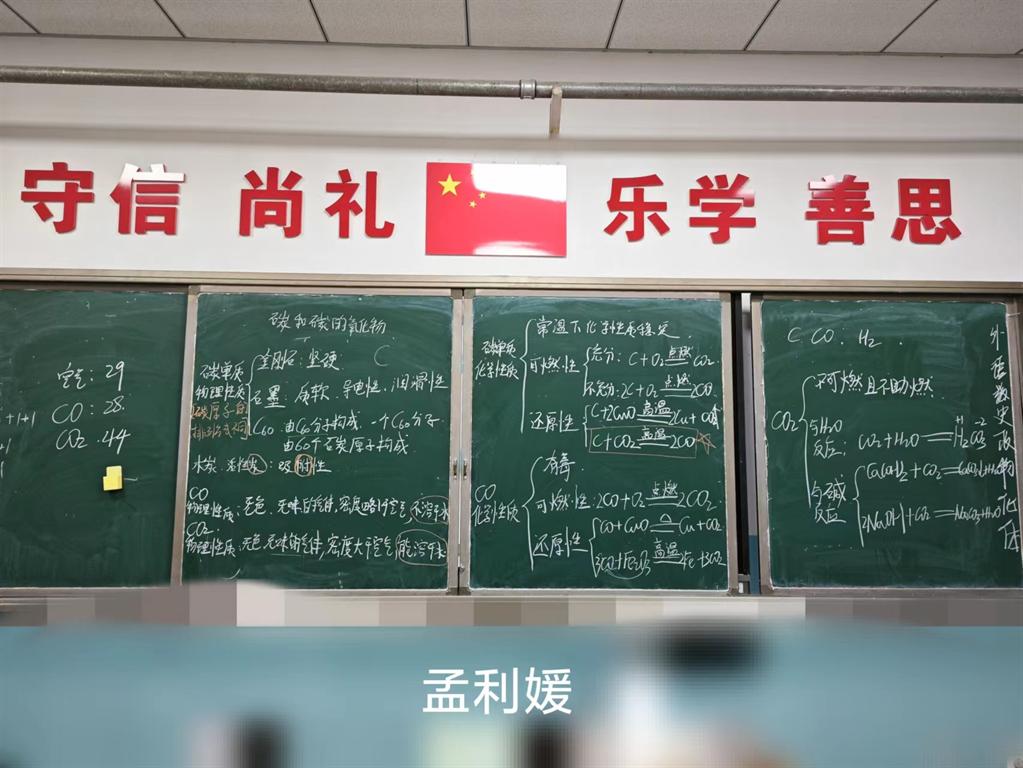 守信 尚礼 乐学 善思
空气：29
CO：28.
CO₂.44
+1+1
碳和碳的氧化物
碳单质
物理性质
金刚石：坚硬
C
石墨：质软、导电性、润滑性
C₆₀ 由C₆₀分子构成.一个C₆₀分子
由60个碳原子构成.
木炭.活性炭：吸附性
CO
物理性质：无色、无味的气体,密度略小于空气,不溶于水
CO₂
物理性质：无色.无味的气体,密度大于空气,能溶于水
碳单质
化学性质
常温下化学性质稳定
可燃性
充分：C+O₂点燃CO₂
不充分：2C+O₂点燃2CO
还原性
C+2CuO高温2Cu+CO₂
C+CO₂高温2CO
CO
化学性质
有毒
可燃性：2CO+O₂点燃2CO₂
还原性
CO+CuO△Cu+CO₂
高温
C CO. H₂
CO₂
不可燃且不助燃
与H₂O
反应：CO₂+H₂O═H₂CO₃
与碱
反应
孟利媛